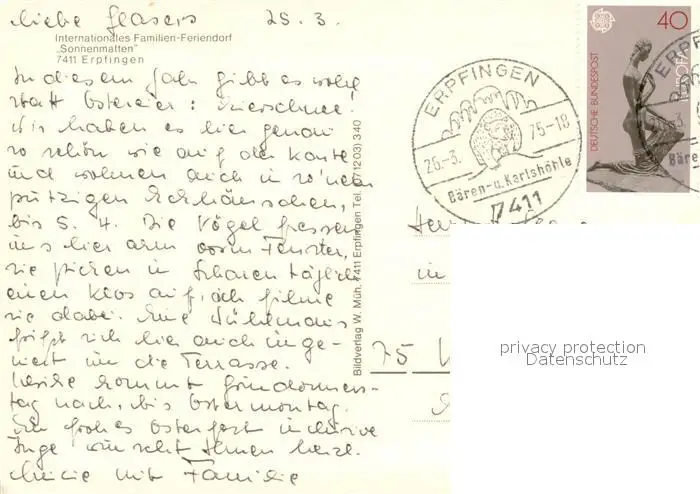 Liebe Glasers 25.3.
Internationales Familien-Feriendorf
„Sonnenmatten"
7411 Erpfingen
In diesem Jahr gibt es wohl
statt Ostereier: Eierschnee!
Wir haben es hier genau
so schön wie auf der Karte
und wohnen auch in so'nem
putzigen Eckhäuschen,
bis 5. 4. Die Vögel fressen
uns hier arm vorm Fenster,
sie picken in Scharen täglich
einen Kloß auf, ich filme
sie dabei. Eine Wühlmaus
frißt sich hier auch
nicht um die Terrasse.
kommt Gründonners-
tag nach, bis Ostermontag.
Ein frohes Osterfest inclusive
Inge wünscht Ihnen herzl.
mit Familie
Bildverlag W. Müh. 7411 Erpfingen Tel. (07 12 03) 340
ERPFINGEN
26.-3. 75-18
Bären-u. Karlshöhle
7411
DEUTSCHE BUNDESPOST
40
EUROPA
ERPF
Bären
Herrn
in
75
privacy protection
Datenschutz